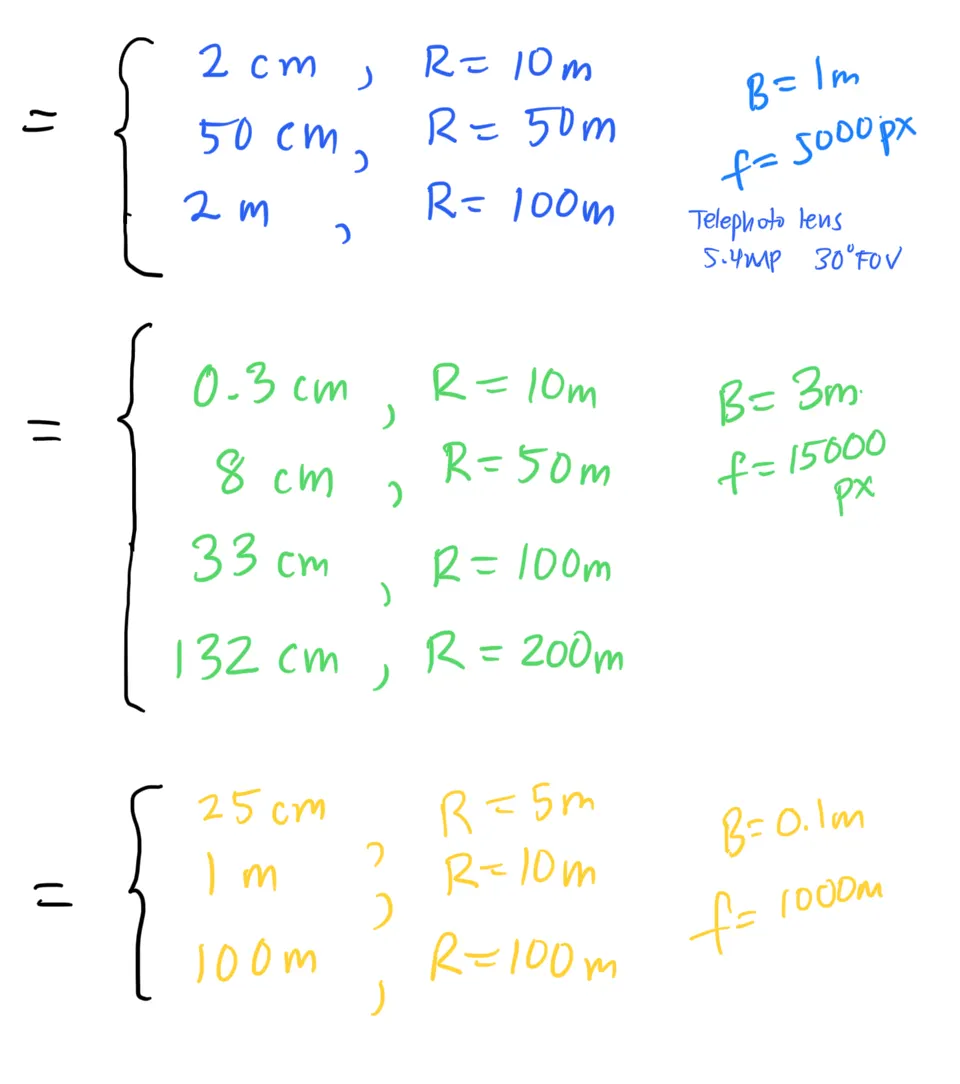 = { 2 cm , R = 10 m
50 cm , R = 50 m
2 m , R = 100 m
B = 1 m
f = 5000 px
Telephoto lens
5.4MP 30° FOV
= { 0.3 cm , R = 10 m
8 cm , R = 50 m
33 cm , R = 100 m
132 cm , R = 200 m
B = 3 m.
f = 15000
px
= { 25 cm , R = 5 m
1 m , R = 10 m
100 m , R = 100 m
B = 0.1 m
f = 1000m